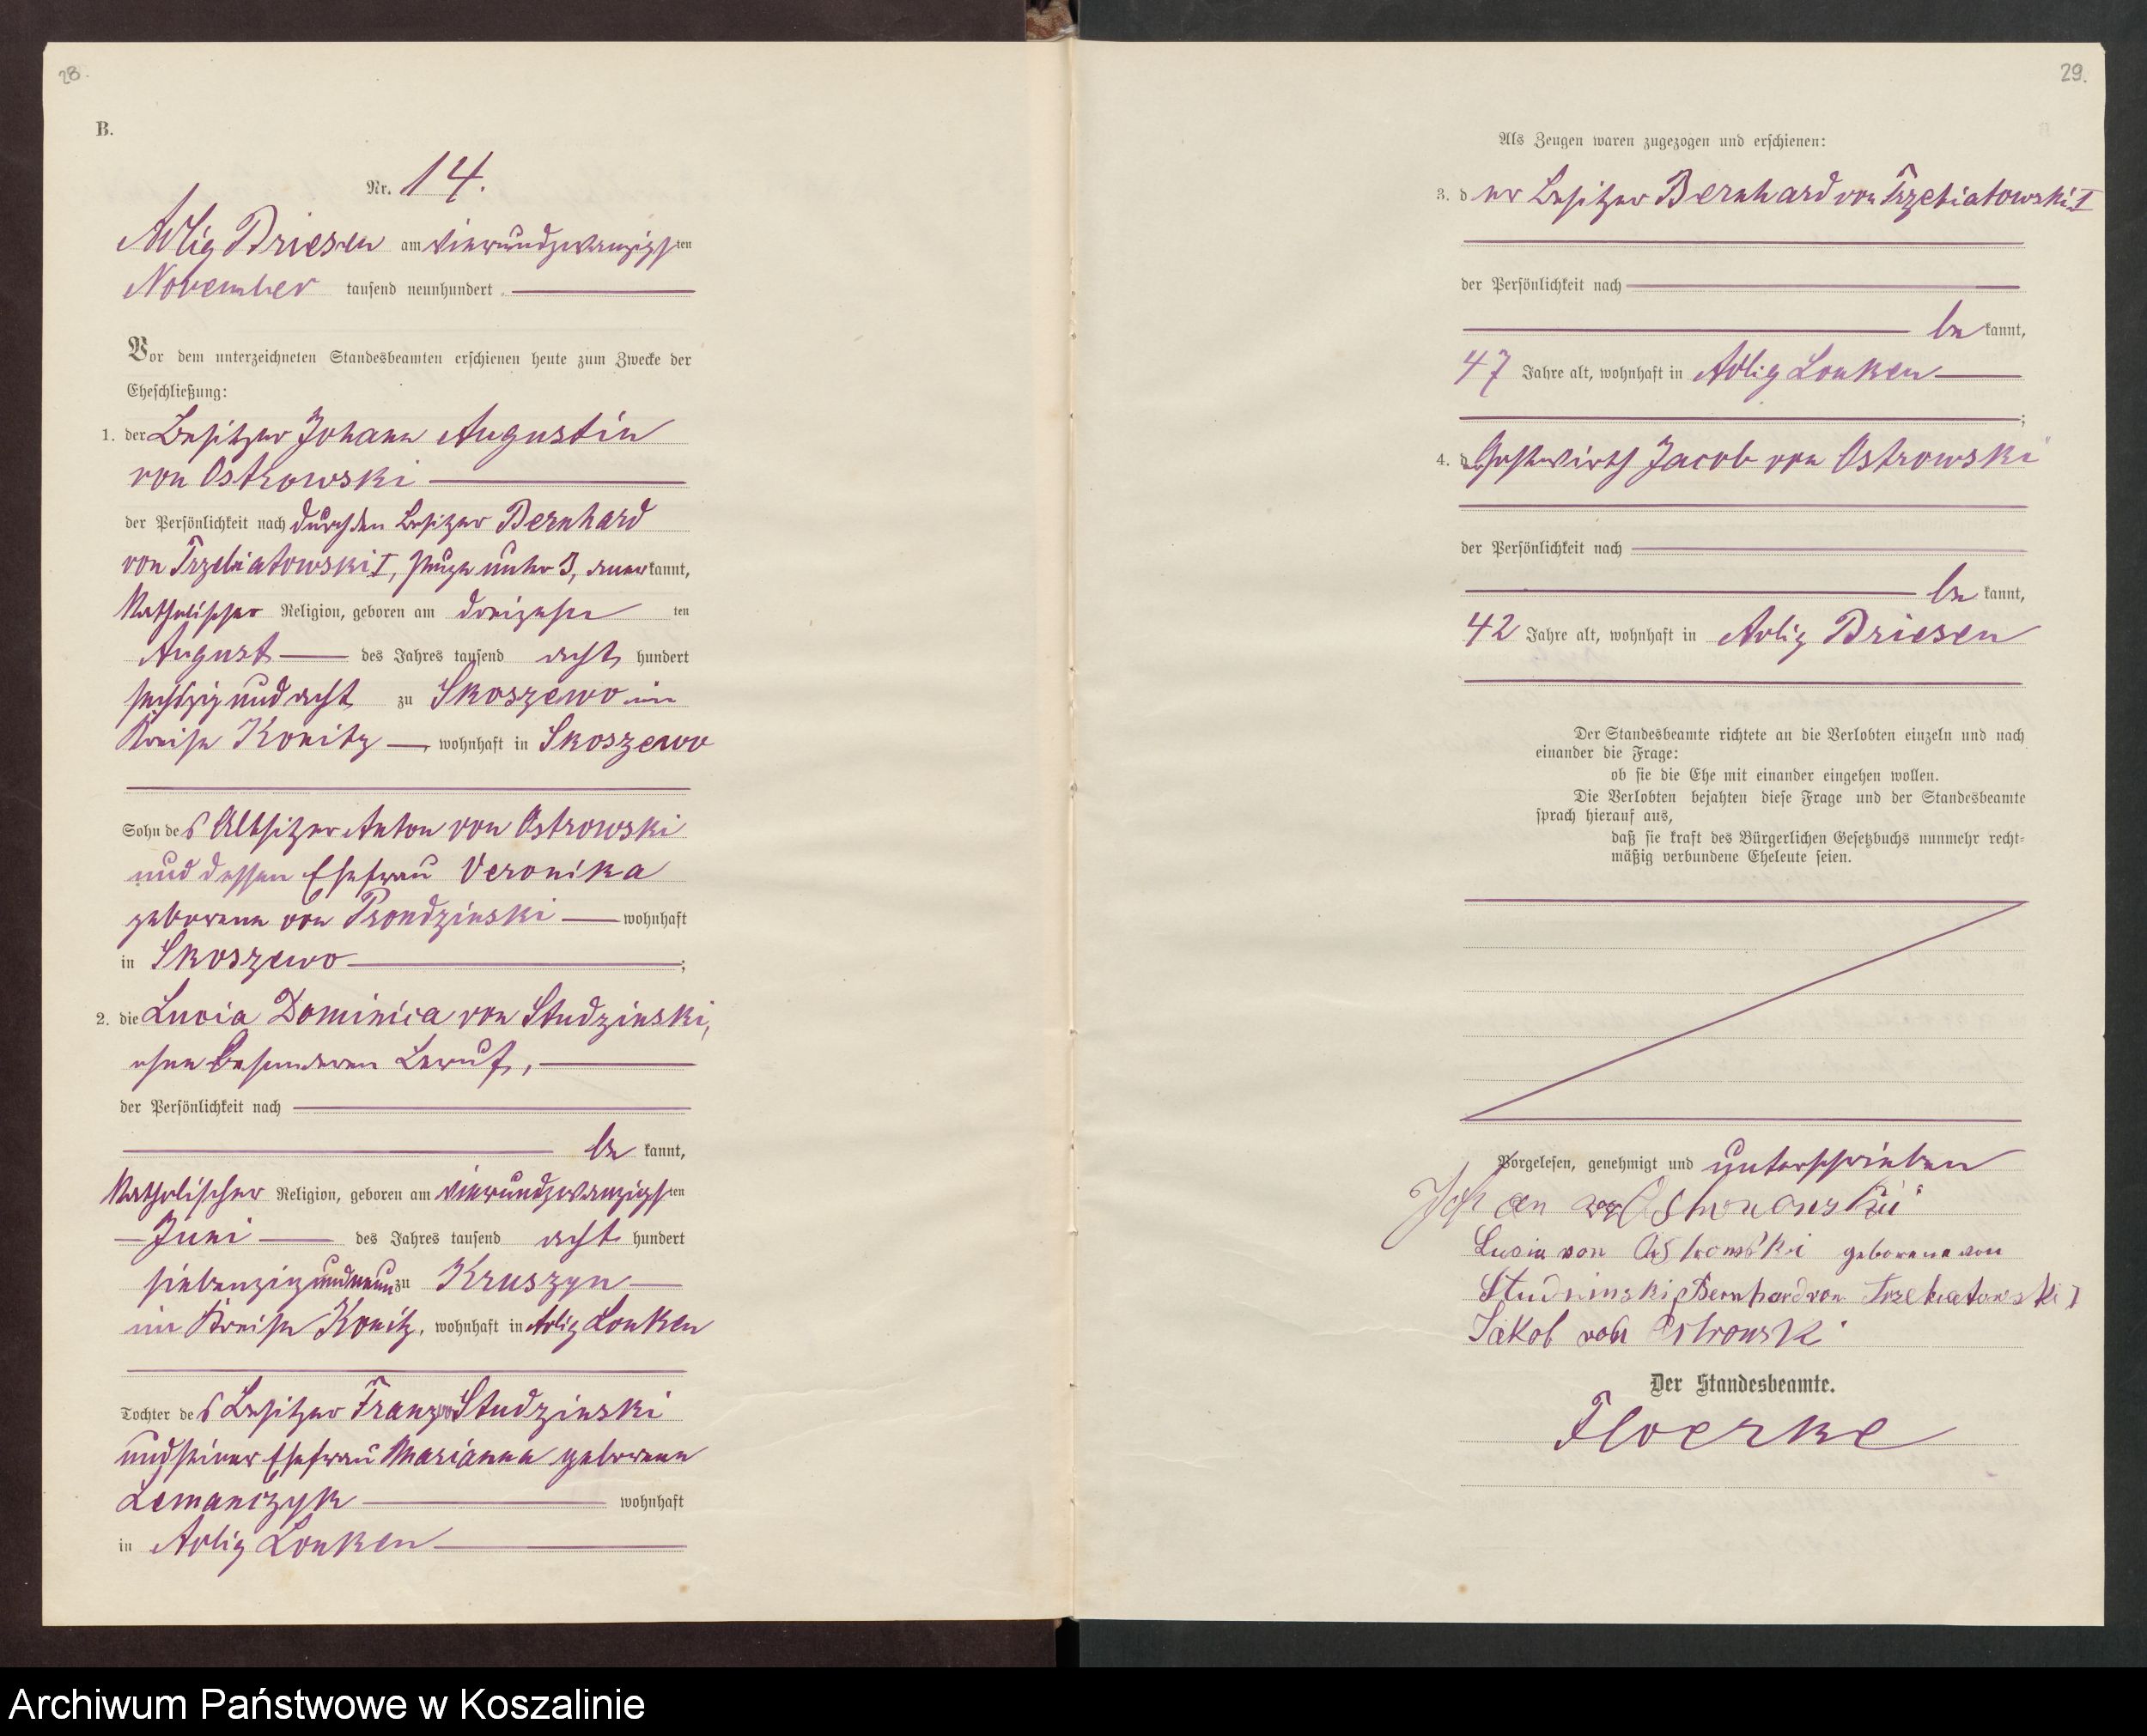 28.
B.
Nr. 14.
Adlig Briesen am vierundzwanzigsten
November tausend neunhundert
Vor dem unterzeichneten Standesbeamten erschienen heute zum Zwecke der
Eheschließung:
1. der Besitzer Johann Augustin
von Ostrowski
der Persönlichkeit nach durch den Besitzer Bernhard
von Trzebiatowski I, Zeuge unter 3, anerkannt,
katholischer Religion, geboren am dreizehnten
August des Jahres tausend acht hundert
sechszig und acht zu Skoszewo im
Kreise Konitz, wohnhaft in Skoszewo
Sohn des Altsitzer Anton von Ostrowski
und dessen Ehefrau Veronika
geborene von Prondzinski wohnhaft
in Skoszewo;
2. die Lucia Dominica von Studzinski,
ohne besonderen Beruf,
der Persönlichkeit nach
be kannt,
katholischer Religion, geboren am vierundzwanzigsten
Juni des Jahres tausend acht hundert
siebenzig und neun zu Kruszyn
im Kreise Konitz, wohnhaft in Adlig Lonken
Tochter des Besitzer Franz von Studzinski
und seiner Ehefrau Marianna geborene
Lemanczyk wohnhaft
in Adlig Lonken
29.
Als Zeugen waren zugezogen und erschienen:
3. der Besitzer Bernhard von Trzebiatowski I
der Persönlichkeit nach
be kannt,
47 Jahre alt, wohnhaft in Adlig Lonken
;
4. der Gastwirth Jacob von Ostrowski
der Persönlichkeit nach
be kannt,
42 Jahre alt, wohnhaft in Adlig Briesen
Der Standesbeamte richtete an die Verlobten einzeln und nach
einander die Frage:
ob sie die Ehe mit einander eingehen wollen.
Die Verlobten bejahten diese Frage und der Standesbeamte
sprach hierauf aus,
daß sie kraft des Bürgerlichen Gesetzbuchs nunmehr recht=
mäßig verbundene Eheleute seien.
Vorgelesen, genehmigt und unterschrieben
Johan von Ostrowski
Lucia von Ostrowski geborene von
Studzinski, Bernhard von Trzebiatowski I
Jakob von Ostrowski
Der Standesbeamte.
Floerke
Archiwum Państwowe w Koszalinie